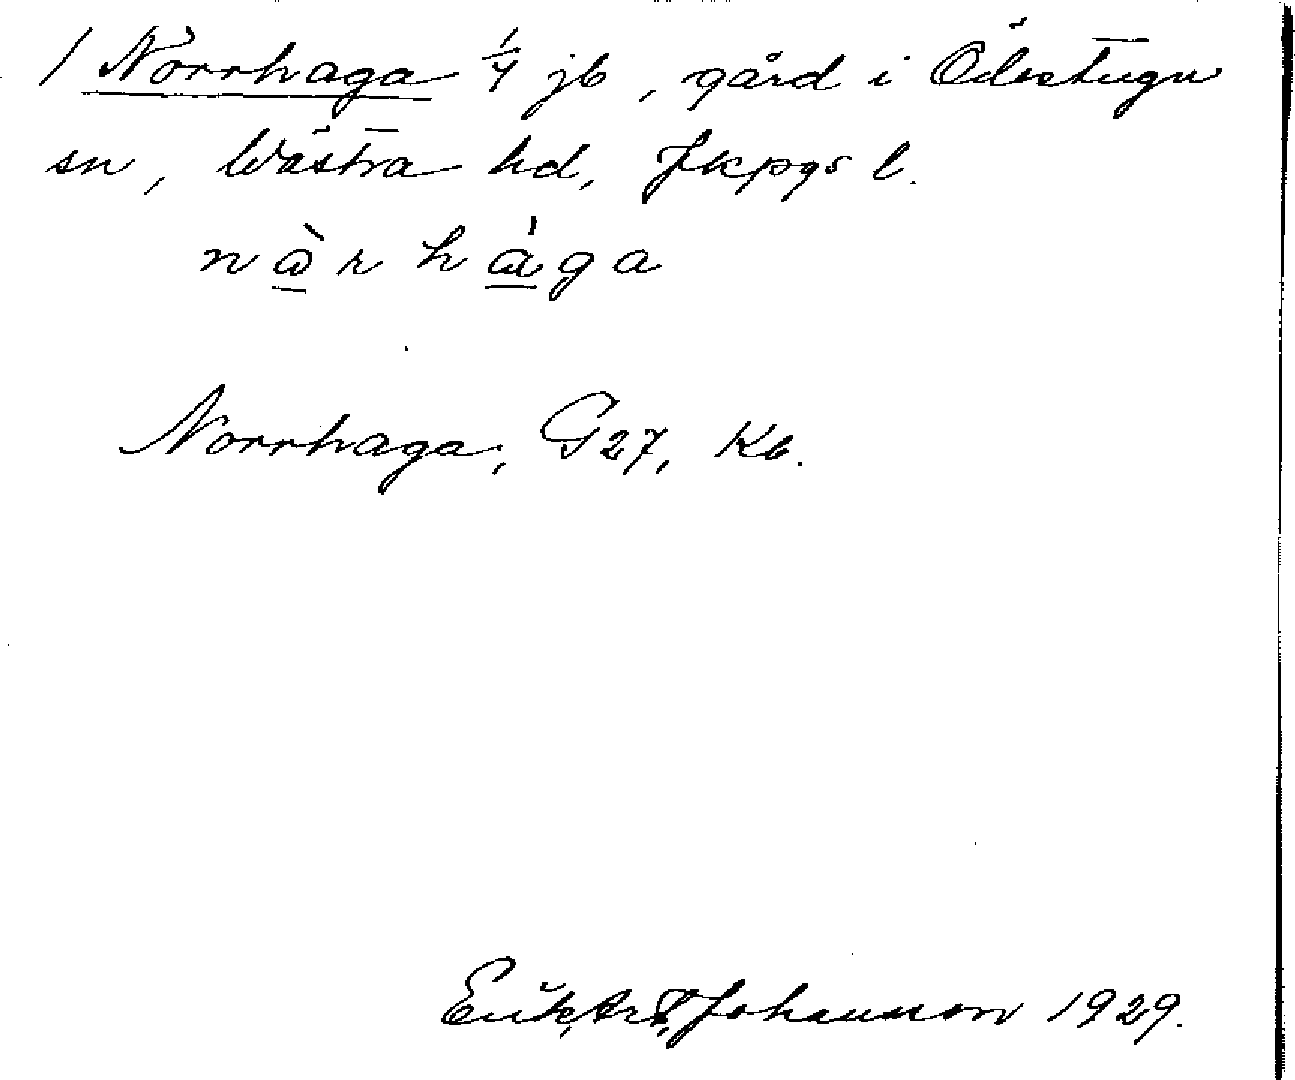 1 Norrhaga 1/4 jb, gård i Ölmstugu
sn, Wästra hd, Jkpgs l.
nàrhága
Norrhaga, G27, Kb.
Johansson 1929.